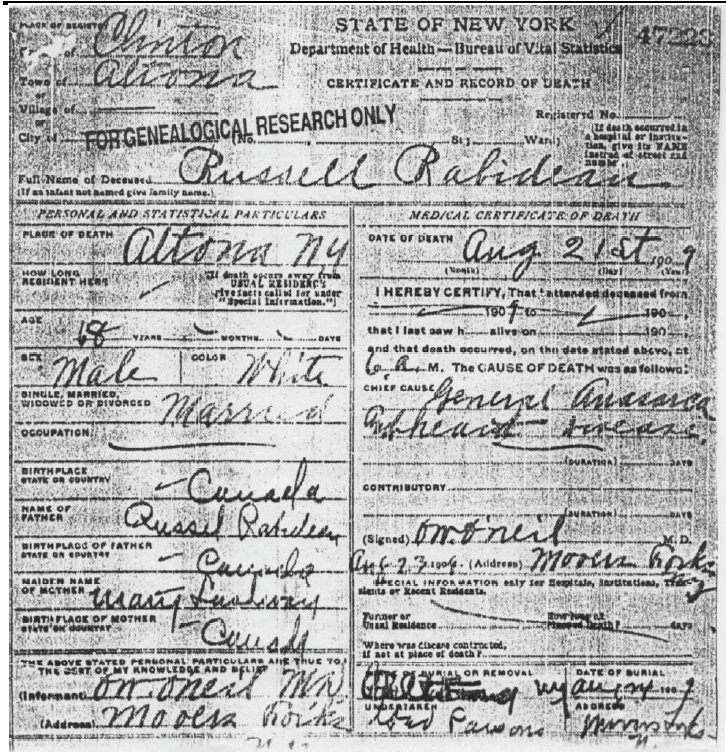 PLACE OF REGISTRY
STATE OF NEW YORK
47223
Clinton
Department of Health—Bureau of Vital Statistics
Town of Altona
CERTIFICATE AND RECORD OF DEATH
or
Village of
or
Registered No.
City of (No. , St; Ward)
FOR GENEALOGICAL RESEARCH ONLY
[If death occurred in
a hospital or institu-
tion, give its NAME
instead of street and
number]
Full Name of Deceased Russell Rabideau
(If an infant not named give family name.)
PERSONAL AND STATISTICAL PARTICULARS
PLACE OF DEATH Altona NY
HOW LONG
RESIDENT HERE
[If death occurs away from
USUAL RESIDENCE
give facts called for under
"Special Information."]
AGE 68 YEARS MONTHS DAYS
SEX Male COLOR White
SINGLE, MARRIED,
WIDOWED OR DIVORCED Married
OCCUPATION
BIRTHPLACE
STATE OR COUNTRY Canada
NAME OF
FATHER Russel Rabideau
BIRTHPLACE OF FATHER
STATE OR COUNTRY Canada
MAIDEN NAME
OF MOTHER Mary
BIRTHPLACE OF MOTHER
STATE OR COUNTRY Canada
THE ABOVE STATED PERSONAL PARTICULARS ARE TRUE TO
THE BEST OF MY KNOWLEDGE AND BELIEF
(Informant) OW O'neil MD
(Address) Mooers Forks
MEDICAL CERTIFICATE OF DEATH
DATE OF DEATH Aug 21st 1909
(Month) (Day) (Year)
I HEREBY CERTIFY, That I attended deceased from
1909 to 190
that I last saw h alive on 190
and that death occurred, on the date stated above, at
6 A. M. The CAUSE OF DEATH was as follows:
CHIEF CAUSE General Anasarca
heart Disease
(DURATION) DAYS
CONTRIBUTORY
(DURATION) DAYS
(Signed) OW O'neil M.D.
Aug 23 190 (Address) Mooers Forks
NY
SPECIAL INFORMATION only for Hospitals, Institutions, Tran-
sients or Recent Residents.
Former or
Usual Residence
How long at
Place of Death? days
Where was disease contracted,
if not at place of death?
BURIAL OR REMOVAL
DATE OF BURIAL
NY Aug 190
UNDERTAKER
ADDRESS
Parsons